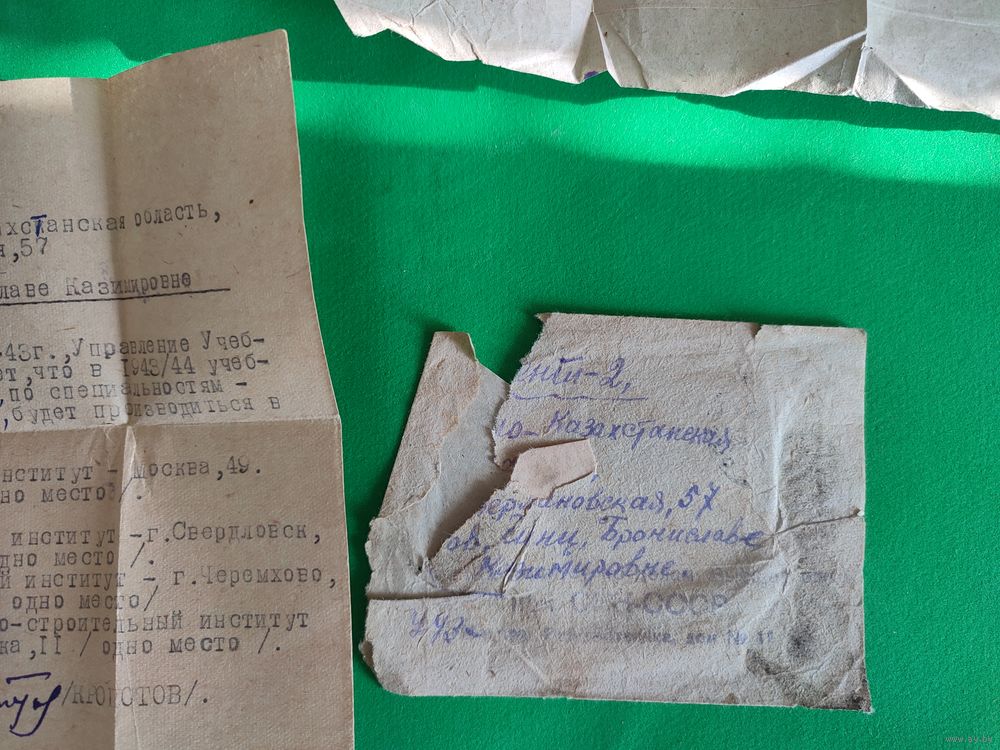 ахстанская область,
я,57
лаве Казимировне
43г.,Управление Учеб-
ет,что в 1943/44 учеб-
,по специальностям -
,будет производиться в
нститут - Москва,49.
но место /.
институт -г.Свердловск,
дно место /.
й институт - г.Черемхово,
одно место/
о-строительный институт
ка,II / одно место /.
/КЮ ОТОВ/.
енти-2,
о- Казахстанская
ановская, 57
ов. Брониславе
Казимировне.
СССР
УУЗ-
дом № 11
www.ay.by